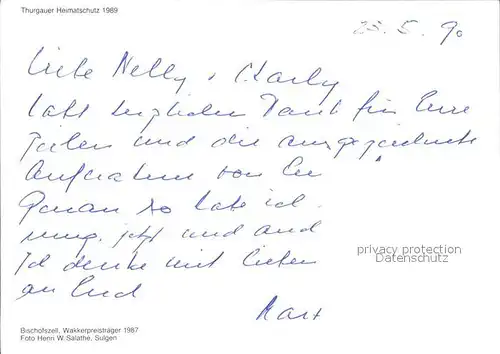 Thurgauer Heimatschutz 1989
23. 5. 90
Liebe Nelly + Charly
habt herzlichen Dank für Eure
Zeilen und die ausgezeichnete
Aufnahme von
Genau so habe ich
jetzt und
Ich denke mit lieben
an Euch
privacy protection
Datenschutz
Bischofszell, Wakkerpreisträger 1987
Foto Henri W. Salathé, Sulgen